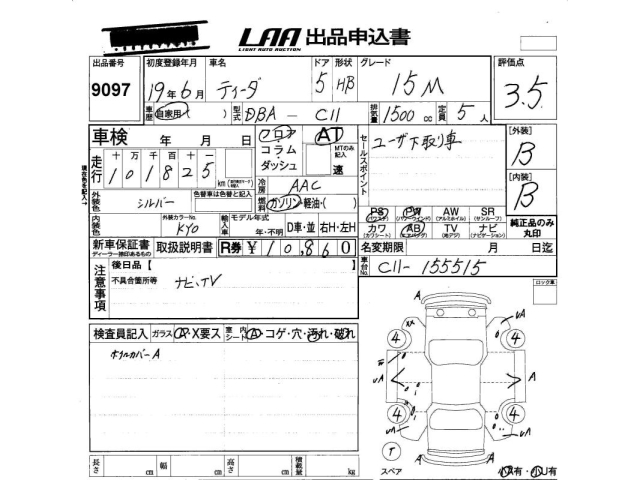 LAA 出品申込書
LIGHT AUTO AUCTION
出品番号 初度登録年月 車名 ドア 形状 グレード 評価点
9097 19年6月 ティーダ 5 HB 15M 3.5
車歴 自家用( ) 型式 DBA - C11 排気量 1500 cc 定員 5人
車検 年 月 日 フロア コラム ダッシュ AT MTのみ記入 速
セールスポイント ユーザ下取り車
[外装] B
[内装] B
走行 十万千百十一
101825 km
現在色を記入
冷房 AAC
外装色 シルバー 色替車は色替と記入 燃料 ガソリン・軽油・( )
内装色 外装カラーNo. KY0 輸入車 モデル年式 年・不明 D車・並 右H・左H
PS PW AW SR
(パワステ) (パワーウインド) (アルミホイル) (サンルーフ)
カワ AB TV ナビ
(カワシート) (エアバッグ) (地デジ) (ナビゲーション)
純正品のみ丸印
新車保証書 取扱説明書 R券 ¥10,860
ディーラー捺印あるもの
名変期限 月 日迄
車台No. C11-155515
注意事項 後日品【
不具合箇所等 ナビ、TV
ロック車
検査員記入 ガラス A・X要ス 室内シート A・コゲ・穴・汚れ・破れ
ホイルカバーA
uA A
4 4
uA A
4 4
uA uA
T A
スペア 小A有・小U有
長さ cm 幅 cm 高さ cm 積載量 kg